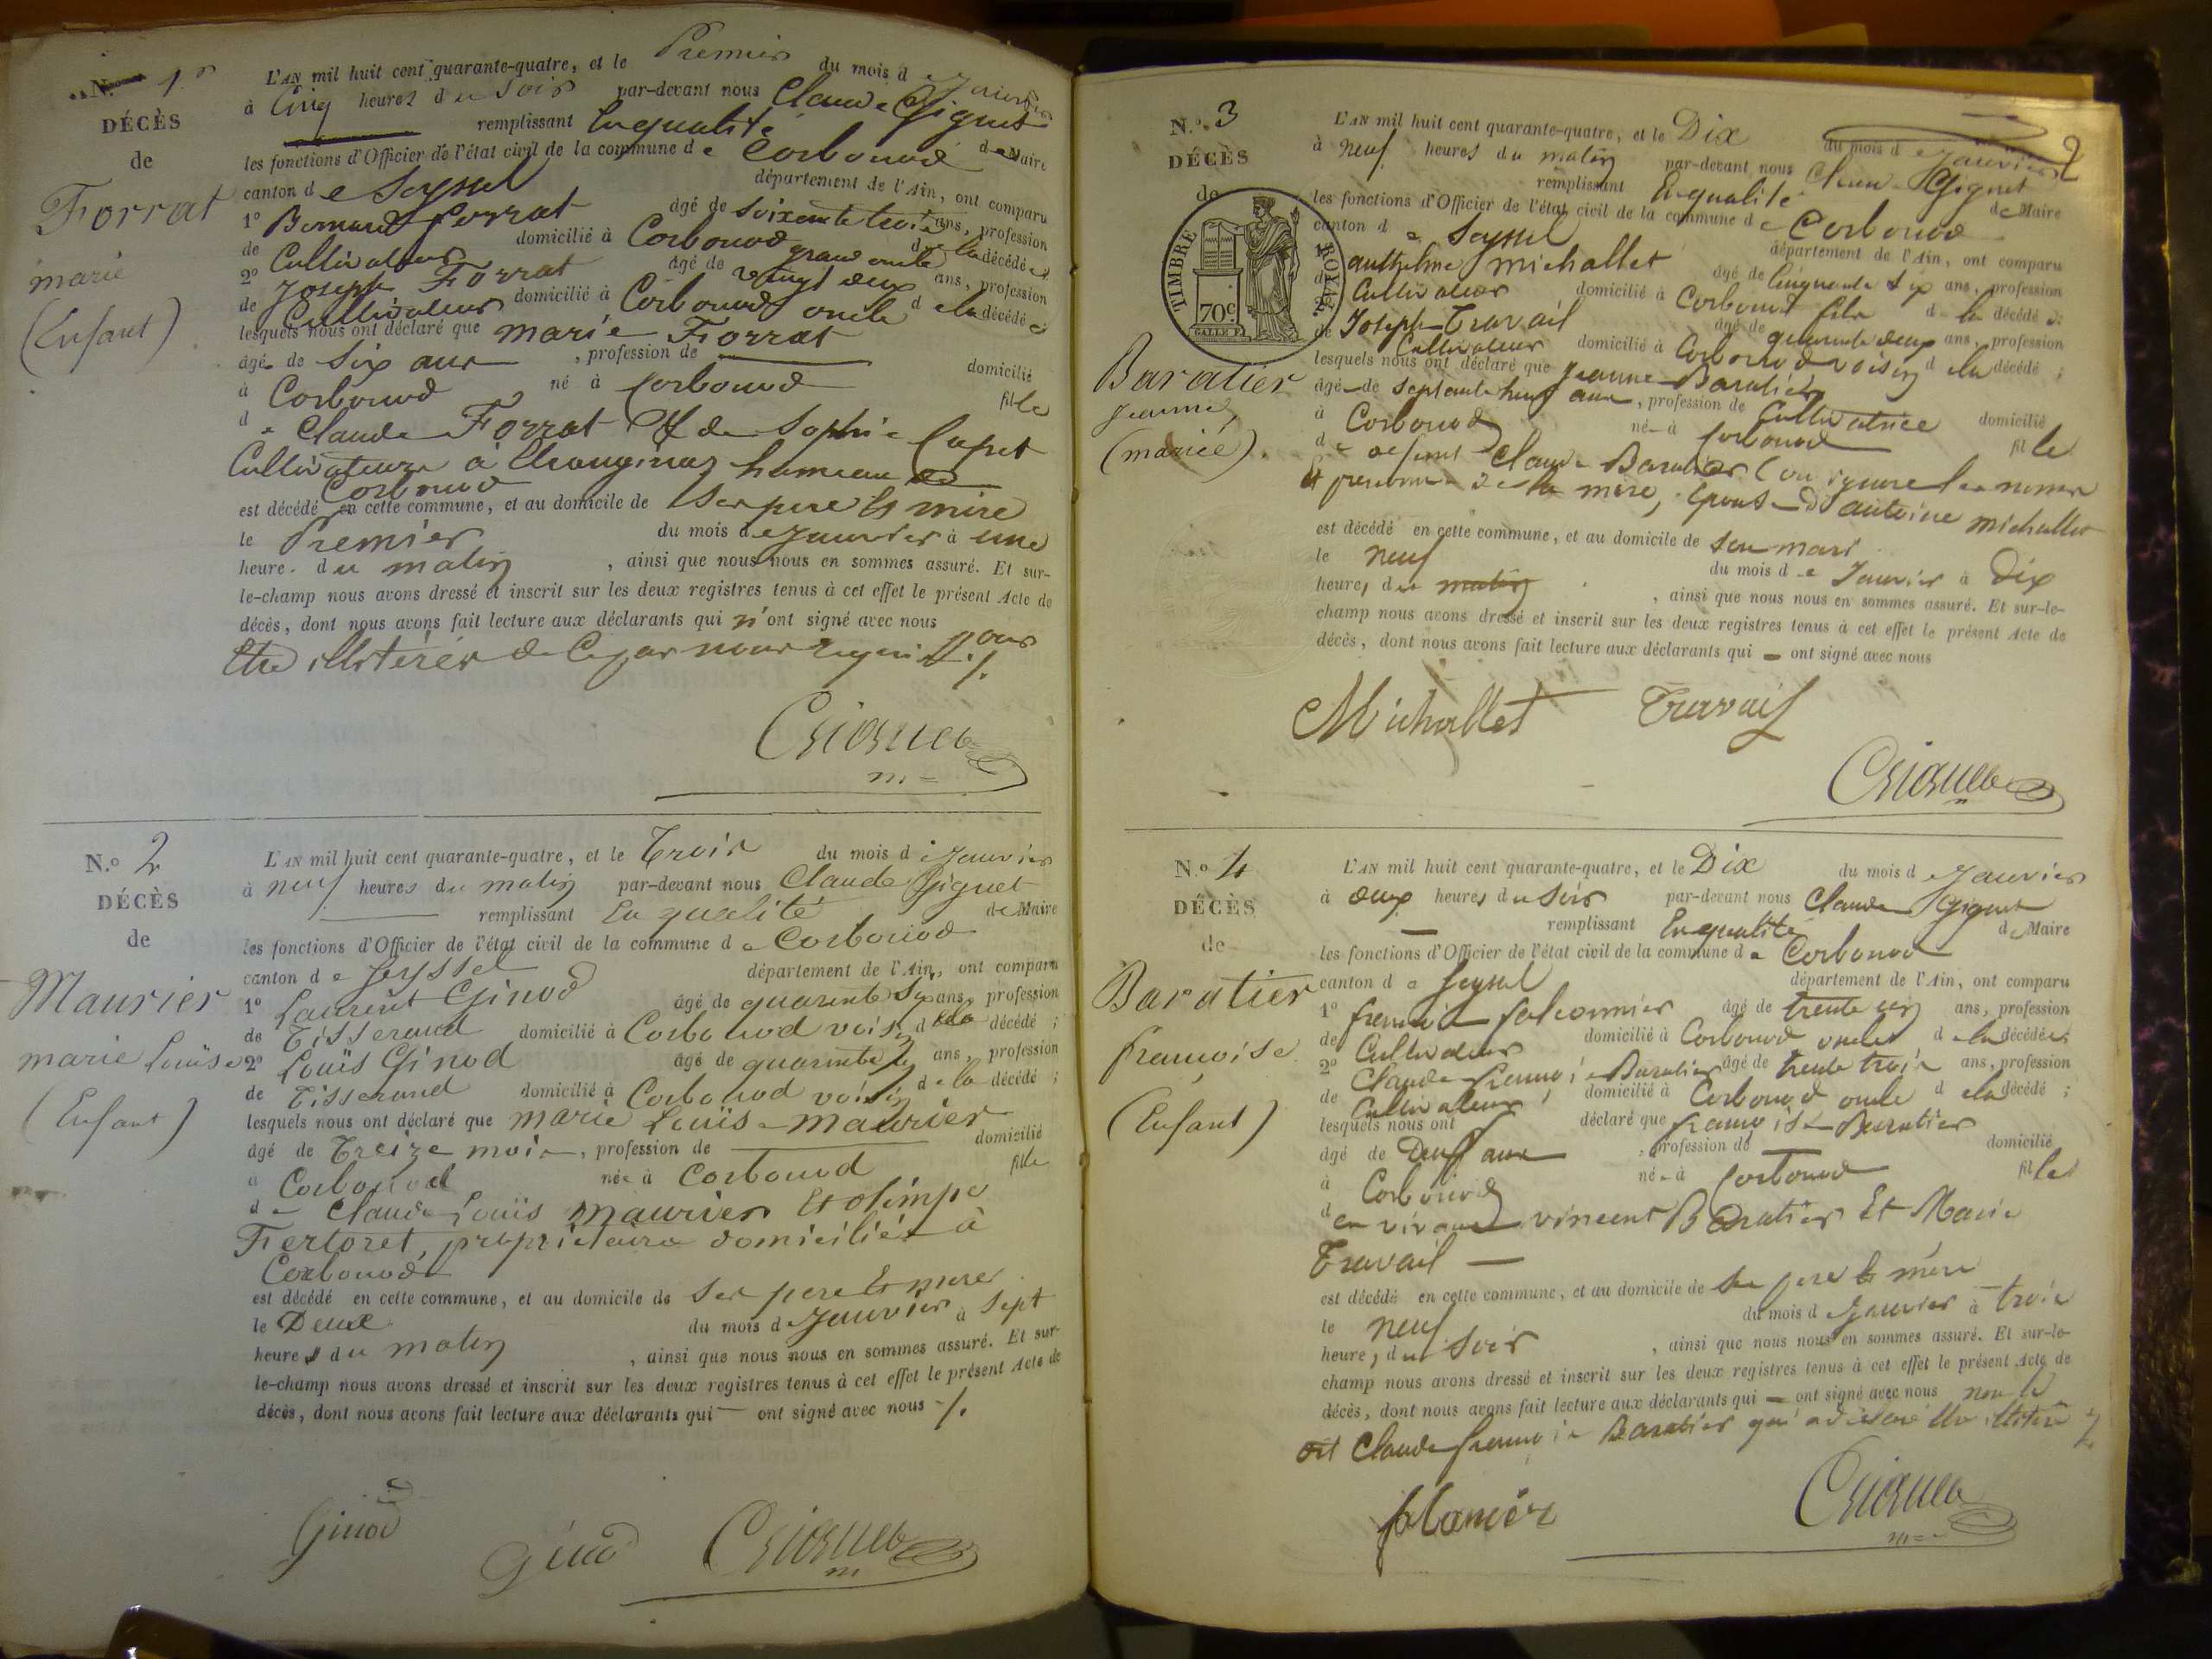 N.o 1er
DÉCÈS
de
Forrat
marie
(Enfant)
L'AN mil huit cent quarante-quatre, et le Premier du mois de Janvier
à Cinq heures du Soir par-devant nous Claude Giguet
remplissant En qualité de Maire
les fonctions d'Officier de l'état civil de la commune de Corbonod
canton de Seyssel département de l'Ain, ont comparu
1º Bernard forrat âgé de Soixante trois ans, profession
de Cultivateur domicilié à Corbonod grand oncle de la décédée
2º Joseph Forrat âgé de vingt deux ans, profession
de Cultivateur domicilié à Corbonod oncle de la décédée
lesquels nous ont déclaré que marie Forrat
âgée de Six ans , profession de domicilié
à Corbonod né à Corbonod fille
de Claude Forrat Et de Sophie
Cultivateurs à hameau de
Corbonod
est décédé en cette commune, et au domicile de Ses pere et mere
le Premier du mois de Janvier à une
heure du matin , ainsi que nous nous en sommes assuré. Et sur-
le-champ nous avons dressé et inscrit sur les deux registres tenus à cet effet le présent Acte de
décès, dont nous avons fait lecture aux déclarants qui n'ont signé avec nous pour
Etre illitérés de Ce par nous requis ./.
N.o 2
DÉCÈS
de
Maurier
marie Louïse
(Enfant)
L'AN mil huit cent quarante-quatre, et le Trois du mois de Janvier
à neuf heures du matin par-devant nous Claude Giguet
remplissant En qualité de Maire
les fonctions d'Officier de l'état civil de la commune de Corbonod
canton de Seyssel département de l'Ain, ont comparu
1º Laurent Ginod âgé de quarente Six ans, profession
de Tisserand domicilié à Corbonod voisin de la décédé ;
2º Louïs Ginod âgé de quarente ans, profession
de Tisserand domicilié à Corbonod voisin de la décédé ;
lesquels nous ont déclaré que marie Louïse Maurier
âgé de Treize mois , profession de domicilié
à Corbonod née à Corbonod fille
de Claude Louïs Maurier Et olimpe
Fertoret, propriétaires domiciliés à
Corbonod
est décédé en cette commune, et au domicile de Ses pere Et mere
le Deux du mois de Janvier à Sept
heures du matin , ainsi que nous nous en sommes assuré. Et sur-
le-champ nous avons dressé et inscrit sur les deux registres tenus à cet effet le présent Acte de
décès, dont nous avons fait lecture aux déclarants qui ont signé avec nous ./.
Ginod Ginod
N.o 3
DÉCÈS
de
TIMBRE ROYAL
70c
Baratier
jeanne
(mariée).
2
L'AN mil huit cent quarante-quatre, et le Dix du mois de Janvier
à neuf heures du matin par-devant nous Claude Giguet
remplissant En qualité de Maire
les fonctions d'Officier de l'état civil de la commune de Corbonod
canton de Seyssel département de l'Ain, ont comparu
anthelme michallet âgé de Cinquante Six ans, profession
de Cultivateur domicilié à Corbonod fils de la décédée
Joseph Travail âgé de quarante deux ans, profession
de Cultivateur domicilié à Corbonod voisin de la décédé ;
lesquels nous ont déclaré que Jeanne Baratier
âgée de Septante neuf ans , profession de Cultivatrice domicilié
à Corbonod née à Corbonod fille
de defunt Claude Baratier (on ignore les noms
et prenoms de la mere, Epouse d'antoine michallet
est décédé en cette commune, et au domicile de Son mari
le neuf du mois de Janvier à Dix
heures du matin , ainsi que nous nous en sommes assuré. Et sur-le-
champ nous avons dressé et inscrit sur les deux registres tenus à cet effet le présent Acte de
décès, dont nous avons fait lecture aux déclarants qui ont signé avec nous
Michallet Travail
N.o 4
DÉCÈS
de
Baratier
françoise
(Enfant)
L'AN mil huit cent quarante-quatre, et le Dix du mois de Janvier
à deux heures du Soir par-devant nous Claude Giguet
remplissant En qualité de Maire
les fonctions d'Officier de l'état civil de la commune de Corbonod
canton de Seyssel département de l'Ain, ont comparu
1º françois falconnier âgé de trente cinq ans, profession
de Cultivateur domicilié à Corbonod oncle de la décédée
2º Claude françois Baratier âgé de trente trois ans, profession
de Cultivateur domicilié à Corbonod oncle de la décédé ;
lesquels nous ont déclaré que françoise Baratier
âgé de ans , profession de domicilié
à Corbonod née à Corbonod fille
de vincent Baratier Et Marie
Travail
est décédé en cette commune, et au domicile de Ses pere et mère
le neuf du mois de Janvier à trois
heures du Soir , ainsi que nous nous en sommes assuré. Et sur-le-
champ nous avons dressé et inscrit sur les deux registres tenus à cet effet le présent Acte de
décès, dont nous avons fait lecture aux déclarants qui ont signé avec nous non le
dit Claude françois Baratier qui a déclaré être illitéré